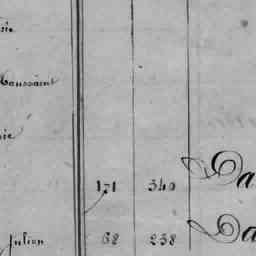 sie
Toussaint
sie
171 340 Da
Julien 68 238 Da